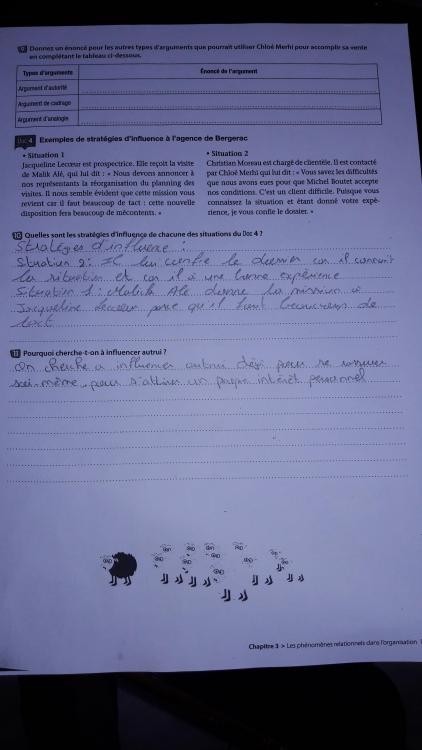 9 Donnez un énoncé pour les autres types d'arguments que pourrait utiliser Chloé Merhi pour accomplir sa vente
en complétant le tableau ci-dessous.
Types d'arguments Énoncé de l'argument
Argument d'autorité
Argument de cadrage
Argument d'analogie
Doc 4 Exemples de stratégies d'influence à l'agence de Bergerac
• Situation 1
Jacqueline Lecœur est prospectrice. Elle reçoit la visite
de Malik Alé, qui lui dit : « Nous devons annoncer à
nos représentants la réorganisation du planning des
visites. Il nous semble évident que cette mission vous
revient car il faut beaucoup de tact : cette nouvelle
disposition fera beaucoup de mécontents. »
• Situation 2
Christian Moreau est chargé de clientèle. Il est contacté
par Chloé Merhi qui lui dit : « Vous savez les difficultés
que nous avons eues pour que Michel Boutet accepte
nos conditions. C'est un client difficile. Puisque vous
connaissez la situation et étant donné votre expé-
rience, je vous confie le dossier. »
10 Quelles sont les stratégies d'influence de chacune des situations du Doc 4 ?
Stratégies d'influence :
Situation 2 : Il lui confie le dossier car il connait
la situation et car il a une bonne expérience
Situation 1 : Malick Alé donne la mission à
Jacqueline Lecœur parce qu'il faut beaucoup de
tact
11 Pourquoi cherche-t-on à influencer autrui ?
On cherche a influencer autrui pour se
soi-même, pour s'attirer un propre intérêt personnel
Chapitre 3 > Les phénomènes relationnels dans l'organisation